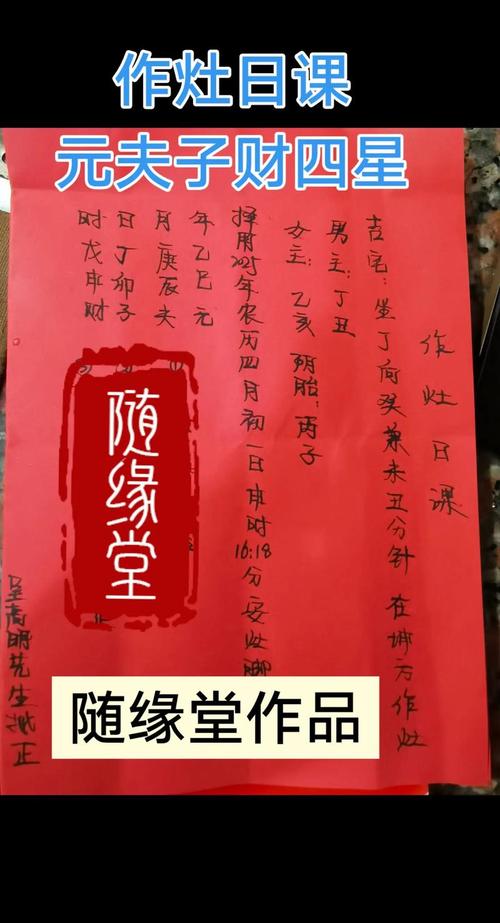 作灶日课
元夫子财四星
作灶日课
吉宅：坐丁向癸兼未丑分针 在坤方作灶
男主：丁丑
女主：乙亥 明胎：丙子
择用2025年农历四月初一日申时16:18分安灶脚
年乙巳 元
月庚辰 夫
日丁卯 子
时戊申 财
呈高明先生批正
随缘堂
随缘堂作品